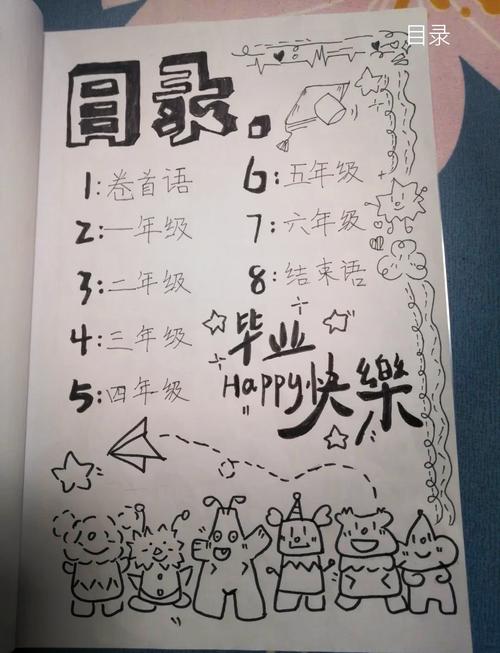 目录
目录.
1:卷首语
2:一年级
3:二年级
4:三年级
5:四年级
6:五年级
7:六年级
8:结束语
毕业
Happy快樂